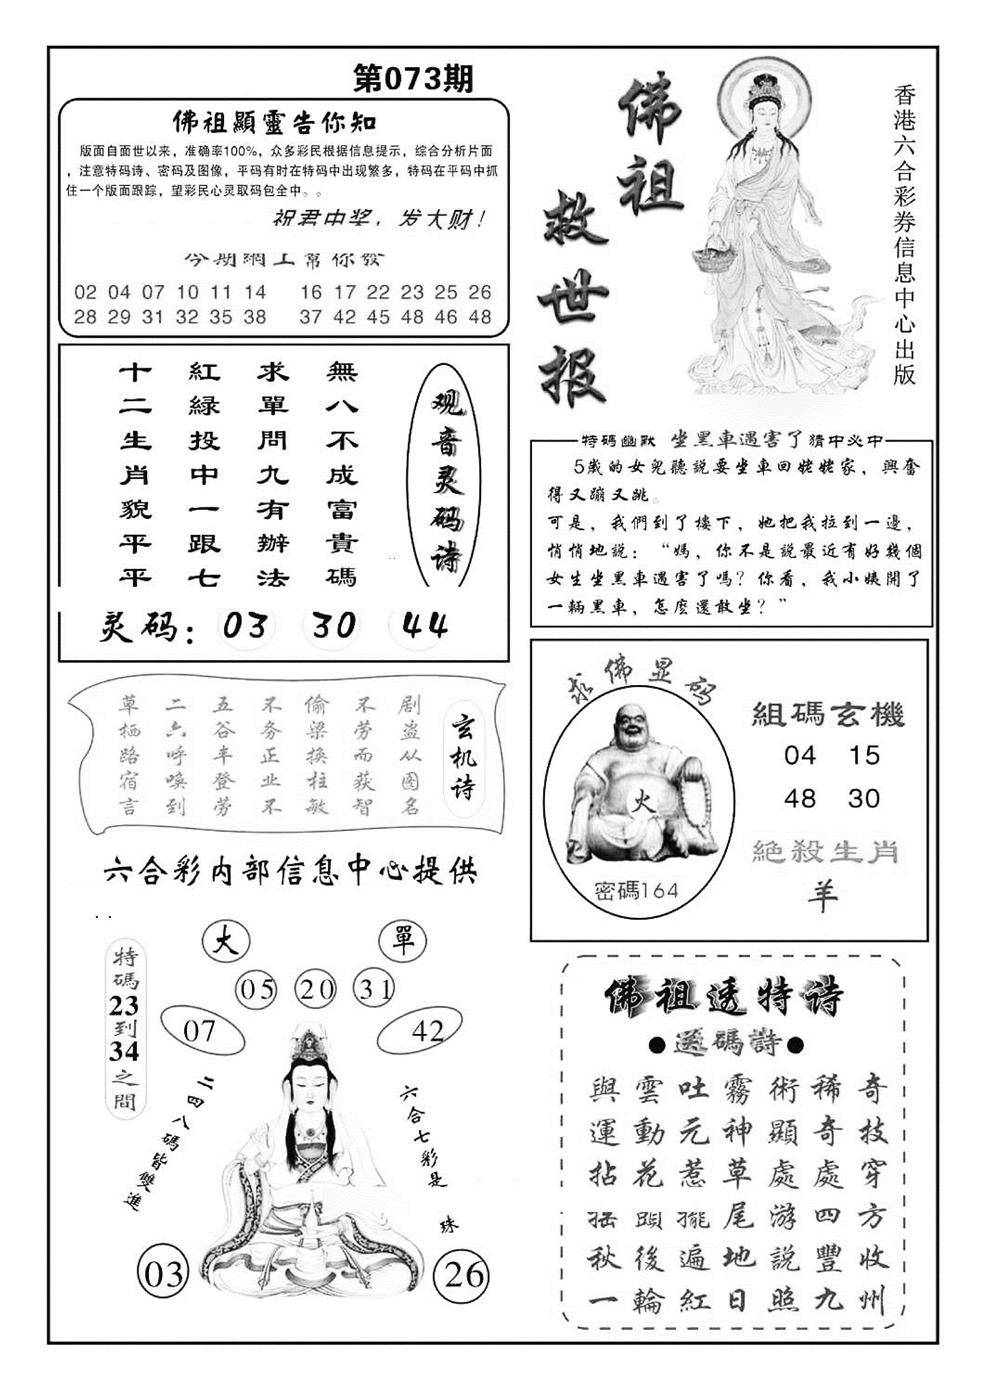 第073期
佛祖顯靈告你知
版面自面世以来，准确率100%，众多彩民根据信息提示，综合分析片面
，注意特码诗、密码及图像，平码有时在特码中出现繁多，特码在平码中抓
住一个版面跟踪，望彩民心灵取码包全中。。
祝君中奖，发大财！
今期網工幫你發
02 04 07 10 11 14 16 17 22 23 25 26
28 29 31 32 35 38 37 42 45 48 46 48
佛祖
救世报
香港六合彩券信息中心出版
观音灵码诗
無八不成富貴碼
求單問九有辦法
紅緑投中一跟七
十二生肖貌平平
灵码：03 30 44
特碼幽默 坐黑車遇害了猜中必中
5歲的女兒聽説要坐車回姥姥家，興奮
得又蹦又跳。
可是，我們到了樓下，她把我拉到一邊，
悄悄地説：“媽，你不是説最近有好幾個
女生坐黑車遇害了嗎？你看，我小姨開了
一輛黑車，怎麼還敢坐？”
玄机诗
剧盗从图名
不劳而获智
偷梁换柱敏
不务正业不
五谷丰登劳
二六呼唤到
草栖路宿言
求佛显码
火
密碼164
組碼玄機
04 15
48 30
絕殺生肖
羊
六合彩内部信息中心提供
大
單
05 20 31
07
42
特碼23到34之間
二四八碼皆雙進
六合七彩是 珠
03
26
佛祖透特诗
●送碼詩●
與雲吐霧術稀奇
運動元神顯奇技
拈花惹草處處穿
尾游四方
秋後遍地説豐收
一輪紅日照九州